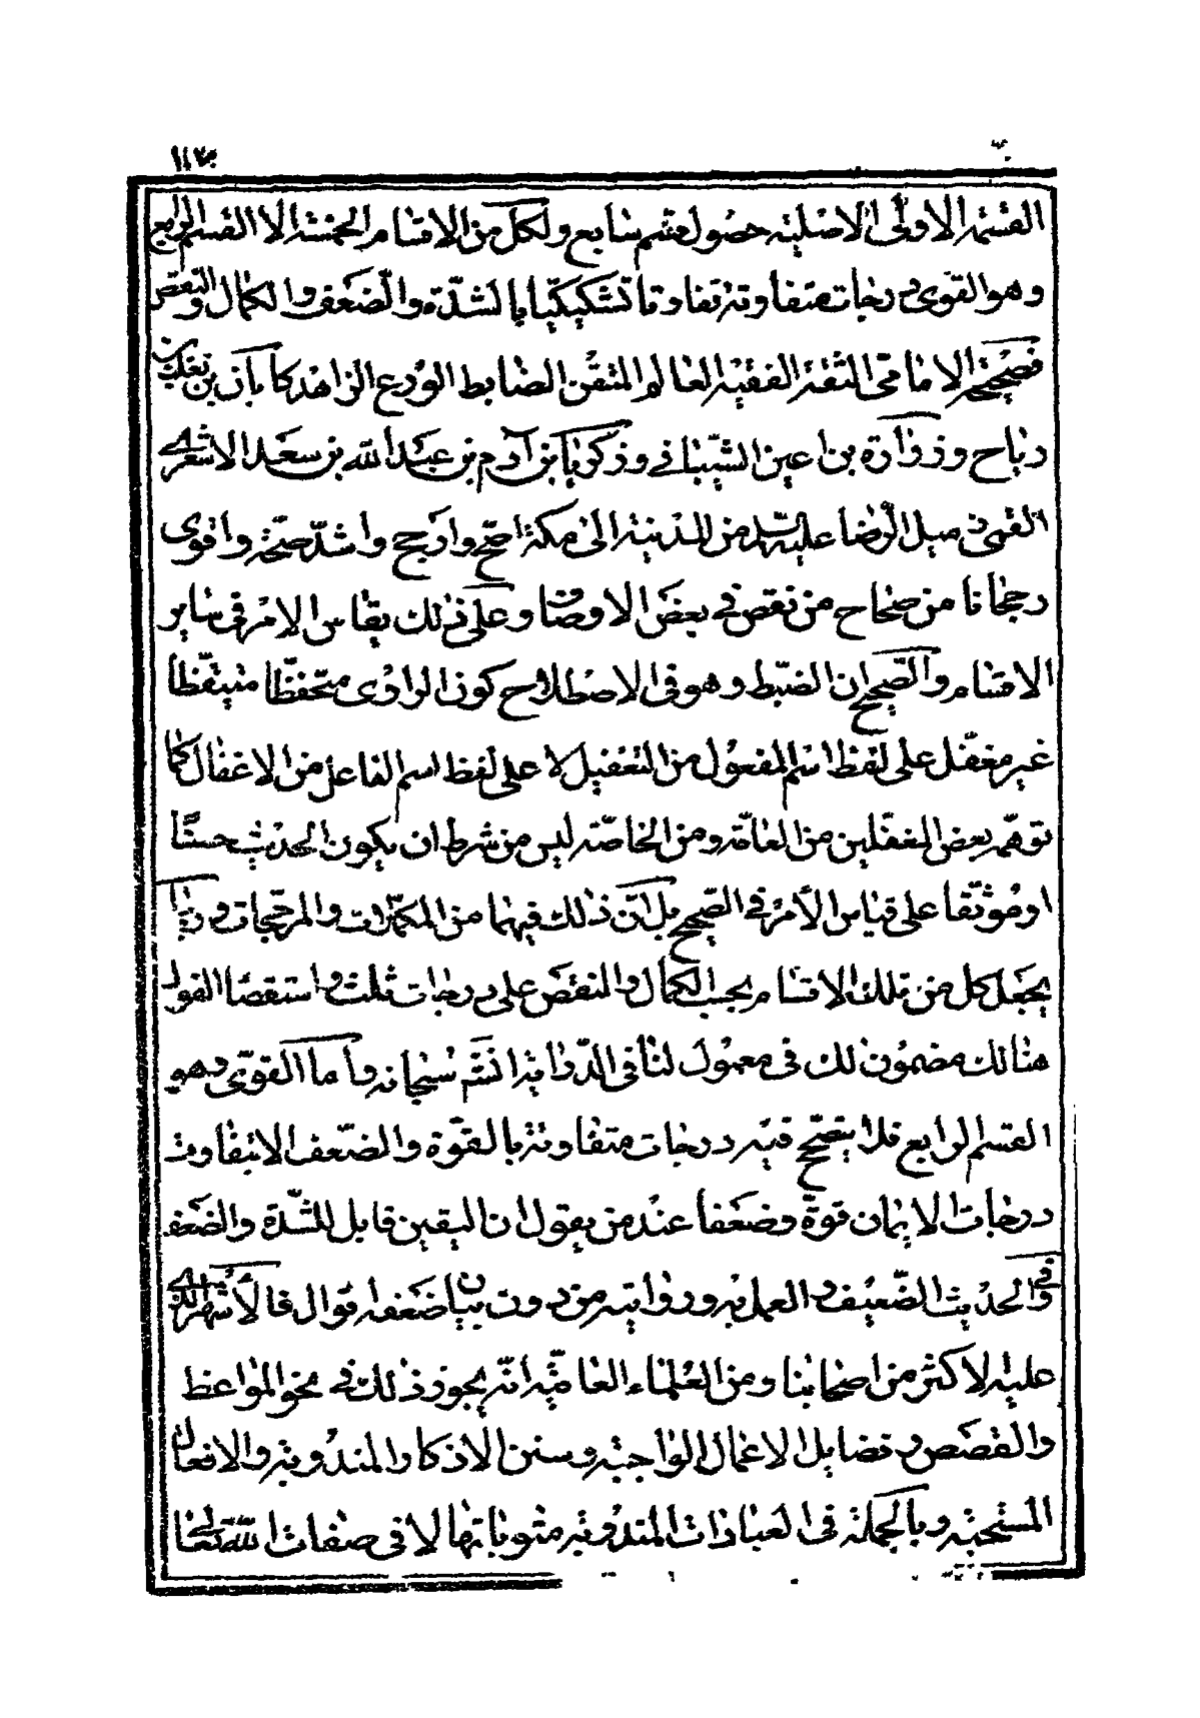 ١١٣
القسمة الاولى الاصلية حصول قسم سابع ولكل من الاقسام الخمسة الا القسم الرابع
وهو القوى درجات متفاوتة تفاوتا تشكيكيا بالشدة والضعف والكمال والنقص
فصحيحة الامامى الثقة الفقيه العالم المتقن الضابط الورع الزاهد كابان بن تغلب بن
رباح وزرارة بن اعين الشيبانى وزكريا بن آدم بن عبد الله بن سعد الاشعرى
القمى زميل الرضا عليه السلم من المدينة الى مكة اصح وارجح واشد صحة واقوى
رجحانا من صحاح من نقص فى بعض الاوصاف وعلى ذلك يقاس الامر فى ساير
الاقسام والصحيح ان الضبط وهو فى الاصطلاح كون الراوى متحفظا متيقظا
غير مغفل على لفظ اسم المفعول من التغفيل لا على لفظ اسم الفاعل من الاغفال كما
توهم بعض المغفلين من العامة ومن الخاصة ليس من شرط ان يكون الحديث حسنا
او موثقا على قياس الأمر فى الصحيح بل ان ذلك فيهما من المكملات والمرجحات وربما
يجعل كل من تلك الاقسام بحسب الكمال والنقص على درجات ثلث واستقصاا القول
هنالك مضمون لك فى معمول لنا فى الدراية ان شم سبحانه واما القوى وهو
القسم الرابع فلا يتصحح فيه درجات متفاوتة بالقوة والضعف الا بتفاوت
درجات الايمان قوة وضعفا عند من يقول ان اليقين قابل للشدة والضعف
وفى الحديث الضعيف والعمل به وروايته من دون بيان ضعفه اقوال فالأشهر الذى
عليه الاكثر من اصحابنا ومن العلماء العامية انه يجوز ذلك فى نحو المواعظ
والقصص وفضايل الاعمال الواجبة وسنن الاذكار المندوبة والافعال
المستحبة وبالجملة فى العبادات المندوبة مثوباتها لا فى صفات الله تعالى